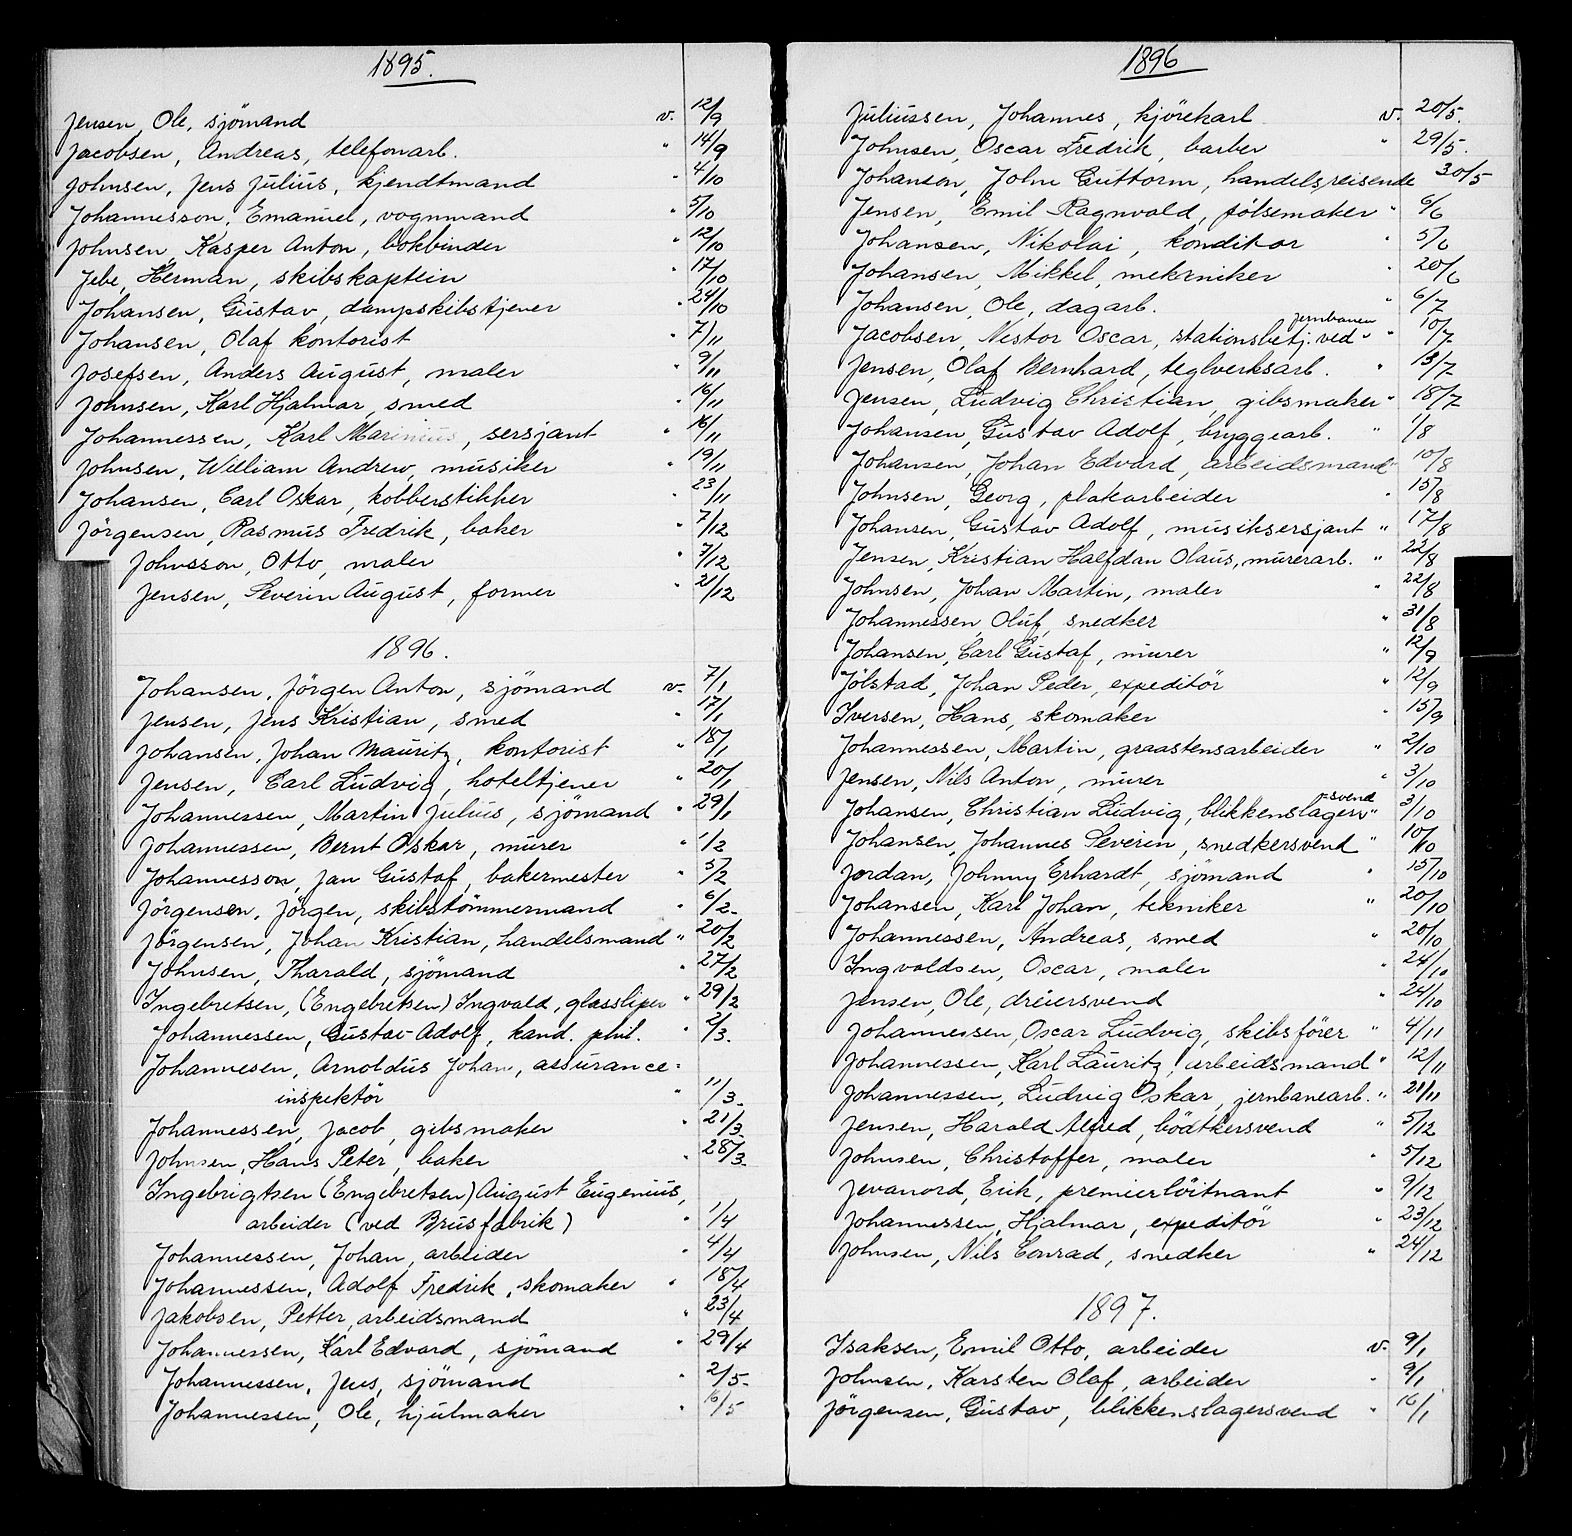 1895.
Jensen, Ole, sjömand v. 12/9
Jacobsen, Andreas, telefonarb. " 14/9
Johnsen, Jens Julius, kjendtmand " 4/10
Johannesson, Emanuel, vognmand " 5/10
Johnsen, Kasper Anton, bokbinder " 12/10
Jebe, Herman, skibskaptein " 17/10
Johansen, Gustav, dampskibstjener " 24/10
Johansen, Olaf kontorist " 7/11
Josefsen, Anders August, maler " 9/11
Johnsen, Karl Hjalmar, smed " 16/11
Johannessen, Karl Marinius, sersjant " 16/11
Johnsen, William Andrew, musiker " 19/11
Johansen, Carl Oskar, kobberstikker " 23/11
Jörgensen, Rasmus Fredrik, baker " 7/12
Johnsson, Otto, maler " 7/12
Jensen, Severin August, former " 21/12
1896.
Johansen, Jörgen Anton, sjömand v. 7/1
Jensen, Jens Kristian, smed " 17/1
Johansen, Johan Mauritz, kontorist " 18/1
Jensen, Carl Ludvig, hoteltjener " 20/1
Johannessen, Martin Julius, sjömand " 29/1
Johannessen, Bernt Oskar, murer " 1/2
Johannesson, Jan Gustaf, bakermester " 5/2
Jörgensen, Jörgen, skibstömmermand " 6/2
Jörgensen, Johan Kristian, handelsmand " 20/2
Johnsen, Tharald, sjömand " 27/2
Ingebretsen, (Engebretsen) Ingvald, glassliper " 29/2
Johannessen, Gustav Adolf, kand. phil. " 2/3.
Johannesen, Arnoldus Johan, assurance-
inspektör " 11/3.
Johannessen, Jacob, gibsmaker " 21/3
Johnsen, Hans Peter, baker " 28/3
Ingebrigtsen (Engebretsen) August Eugenius,
arbeider (ved Brusfabrik) " 1/4
Johannessen, Johan, arbeider " 4/4
Johannessen, Adolf Fredrik, skomaker " 18/4
Jakobsen, Petter, arbeidsmand " 23/4
Johannessen, Karl Edvard, sjömand " 29/4
Johannessen, Jens, sjömand " 2/5.
Johannessen, Ole, hjulmaker " 16/5
1896
Juliussen, Johannes, kjörekarl v. 20/5.
Johnsen, Oscar Fredrik, barber " 29/5.
Johanson, John Guttorm, handelsreisende 30/5
Jensen, Emil Ragnvald, pölsemaker " 6/6
Johansen, Nikolai, konditor " 5/6
Johansen, Mikkel, mekaniker " 20/6
Johansen, Ole, dagarb. " 6/7
Jacobsen, Nestor Oscar, stationsbetj. ved jernbanen " 10/7
Jensen, Olaf Bernhard, teglverksarb. " 13/7
Jensen, Ludvig Christian, gibsmaker " 18/7
Johansen, Gustav Adolf, bryggearb. " 1/8
Johansen, Johan Edvard, arbeidsmand " 10/8
Johnsen, Georg, platearbeider " 15/8
Johansen, Gustav Adolf, musiksersjant " 17/8
Jensen, Kristian Halfdan Olaus, murerarb. " 22/8
Johnsen, Johan Martin, maler " 22/8
Johannessen, Oluf, snedker " 31/8
Johansen, Carl Gustaf, murer " 12/9
Jölstad, Johan Peder, expeditör " 12/9
Iversen, Hans, skomaker " 15/9
Johannessen, Martin, graastensarbeider " 2/10
Jensen, Nils Anton, murer " 3/10
Johansen, Christian Ludvig, blikkenslager-svend " 3/10
Johansen, Johannes Severin, snedkersvend " 10/10
Jordan, Johnny Erhardt, sjömand " 15/10
Johansen, Karl Johan, tekniker " 20/10
Johannessen, Andreas, smed " 20/10
Ingvaldsen, Oscar, maler " 24/10
Jensen, Ole, dreiersvend " 24/10
Johannessen, Oscar Ludvig, skibsförer " 4/11
Johannessen, Karl Lauritz, arbeidsmand " 12/11
Johannessen, Ludvig Oskar, jernbanearb. " 21/11
Jensen, Harald Alfred, bödtkersvend " 5/12
Johnsen, Christoffer, maler " 5/12
Jevanord, Erik, premierlöitnant " 9/12
Johannessen, Hjalmar, expeditör " 23/12
Johnsen, Nils Conrad, snedker " 24/12
1897.
Isaksen, Emil Otto, arbeider v. 9/1
Johnsen, Karsten Olaf, arbeider " 9/1
Jörgensen, Gustav, blikkenslagersvend " 16/1